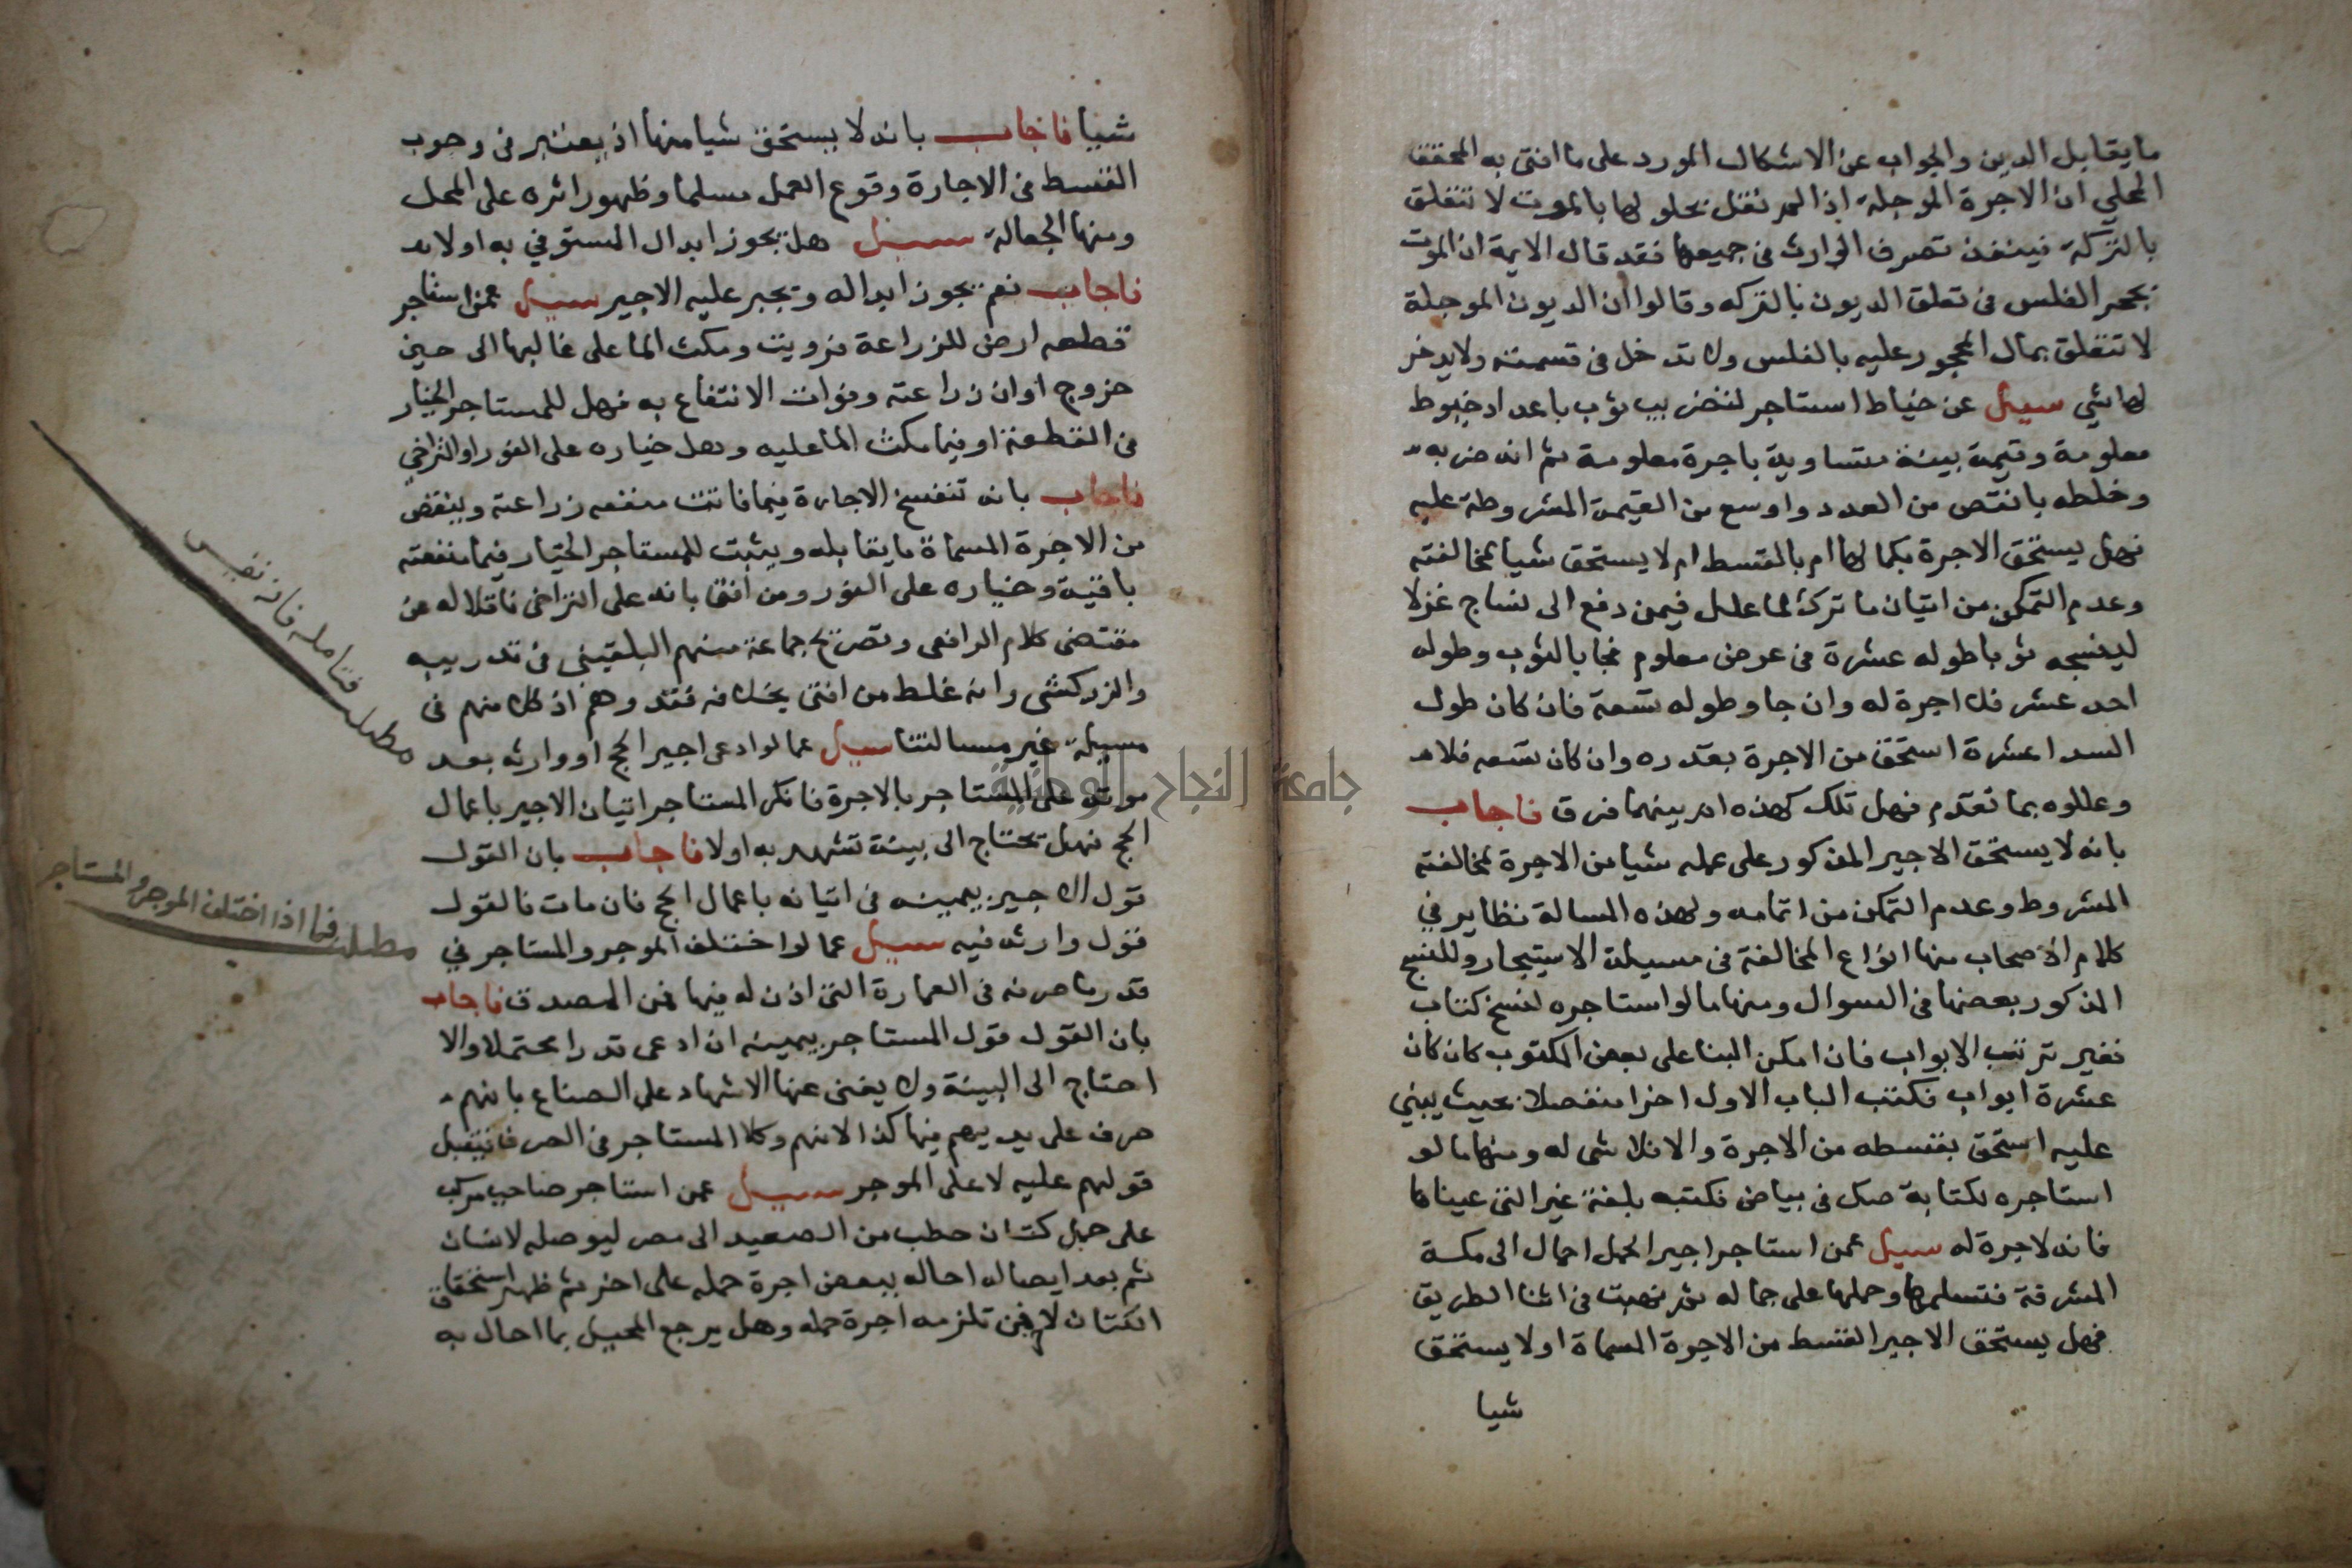 ما يقابل الدين والجواب عن الاشكال المورد على ما افتى به المحقق
المحلي ان الاجرة الموجلة اذا لم نقل بحلولها بالموت لا تتعلق
بالتركة فينفذ تصرف الوارث في جميعها فقد قال الايمة ان الموت
كحجر الفلس في تعلق الديون بالتركه وقالوا ان الديون الموجلة
لا تتعلق بمال المحجور عليه بالفلس ولا تدخل في قسمته ولا يدخر
لها شي سيل عن خياط استاجر لتضريب ثوب باعداد خيوط
معلومة وقيمة بينة متساوية باجرة معلومة ثم انه ضربه
وخلطه بانقص من العدد واوسع من القيمة المشروطة عليه
فهل يستحق الاجرة بكمالها ام بالقسط ام لا يستحق شيا لمخالفته
وعدم التمكن من اتيان ما ترك لما علل فيمن دفع الى نساج غزلا
لينسجه ثوبا طوله عشرة في عرض معلوم فجا بالثوب وطوله
احد عشر فلا اجرة له وان جا وطوله تسعة فان كان طول
السدا عشرة استحق من الاجرة بقدره وان كان تسعه فلا
وعللوه بما تقدم فهل تلك كهذه ام بينهما فرق فاجاب
بانه لا يستحق الاجير المذكور على عمله شيا من الاجرة لمخالفته
المشروط وعدم التمكن من اتمامه ولهذه المسالة نظاير في
كلام الاصحاب منها انواع المخالفة في مسيلة الاستيجار وللنسج
المذكور بعضها في السوال ومنها ما لو استاجره لنسخ كتاب
فغير ترتيب الابواب فان امكن البنا على بعض المكتوب كان كان
عشرة ابواب فكتب الباب الاول اخرا منفصلا بحيث يبني
عليه استحق بقسطه من الاجرة والا فلا شي له ومنها ما لو
استاجره لكتابة صك في بياض فكتبه بلغة غير التي عيناها
فانه لاجرة له سيل عمن استاجر اجير الحمل احمال الى مكة
المشرفة فتسلمها وحملها على جماله ثم نهبت في اثنا الطريق
فهل يستحق الاجير القسط من الاجرة المسماة او لا يستحق
شيا
شييا فاجاب بانه لا يستحق شيا منها اذ يعتبر في وجوب
القسط في الاجارة وقوع العمل مسلما وظهور اثره على المحل
ومنها الجعالة سيل هل يجوز ابدال المستوفي به اولا
فاجاب نعم يجوز ابداله ويجبر عليه الاجير سيل عمن استاجر
قطعه ارض للزراعة فرويت ومكث الما على غالبها الى حين
خروج اوان زراعته وفوات الانتفاع به فهل للمستاجر الخيار
في القطعة او فيما مكث الما عليه وهل خياره على الفور او التراخي
فاجاب بانه تنفسخ الاجارة فيما فاتت منفعه زراعته وينقض
من الاجرة المسماة ما يقابله ويثبت للمستاجر الخيار فيما منفعته
باقية وخياره على الفور ومن افتى بانه على التراخي ناقلا له عن
مقتضى كلام الرافعي وتصريح جماعة منهم البلقيني في تدريبه
والزركشي وانه غلط من افتى بخلافه فقد وهم اذ كلامهم في
مسيلة غير مسالتنا سيل عما لو ادعى اجير الحج او وارثه بعد
موته على المستاجر بالاجرة فانكر المستاجر اتيان الاجير باعمال
الحج فهل تحتاج الى بينة تشهد به اولا فاجاب بان القول
قول الاجير بيمينه في اتيانه باعمال الحج فان مات فالقول
قول وارثه فيه سيل عما لو اختلف الموجر والمستاجر في
قدر ما صرفه في العمارة التي اذن له فيها فمن المصدق فاجاب
بان القول قول المستاجر بيمينه ان ادعى قدرا محتملا والا
احتاج الى البينة ولا يغني عنها الاشهاد على الصناع بانهم
صرف على يديهم فيها كذا لانهم وكلا المستاجر في الصرف فانتقبل
قولهم عليه لا على الموجر سيل عمن استاجر صاحب مركب
على حمل كتان حطب من الصعيد الى مصر ليوصله لانسان
ثم بعد ايصاله احاله ببعض اجرة حمله على اخر ثم ظهر استحقاق
الكتان فمن تلزمه اجرة حمله وهل يرجع المحيل بما احال به
مطلب فتامله فانه نفيس
مطلب فيما اذا اختلف الموجر والمستاجر
جامعة النجاح الوطنية